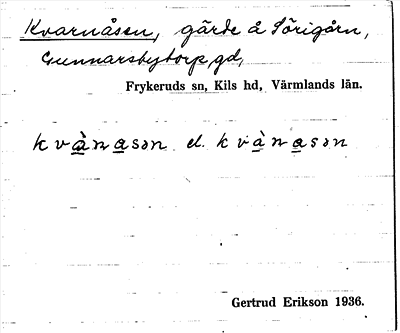 Kvarnåsen, gärde å Sörigårn,
Gunnarsbytorp, gd,
Frykeruds sn, Kils hd, Värmlands län.
kvànason el. kvànason
Gertrud Erikson 1936.